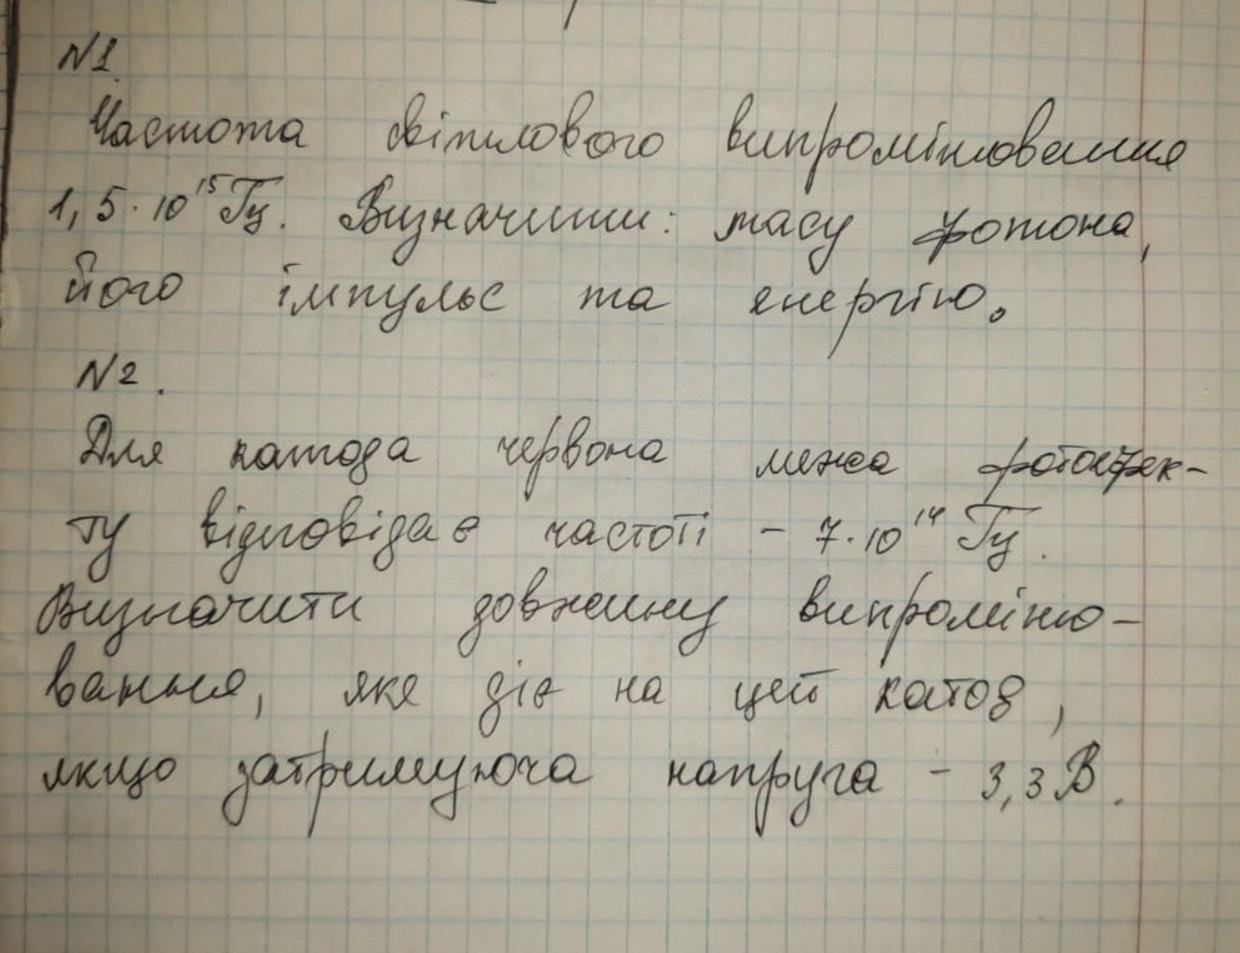 N1.
Частота світлового випромінювання
1,5·10¹⁵ Гц. Визначити: масу фотона,
його імпульс та енергію.
N2.
Для катода червона межа фотоефек-
ту відповідає частоті - 7·10¹⁴ Гц.
Визначити довжину випроміню-
вання, яке діє на цей катод,
якщо затримуюча напруга - 3,3 В.